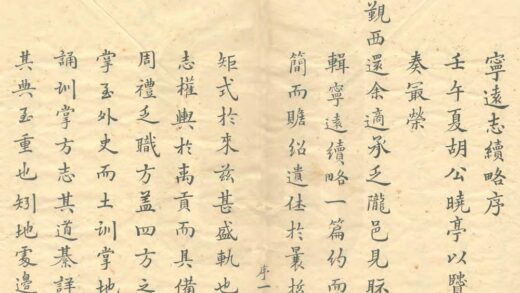 寧遠志續略序
壬午夏胡公曉亭以
奏㝡榮
覲西還余適承乏隴邑見眎
輯寧遠續略一篇約而
簡而贍紹遺佳於曩哲
序一
矩式於來茲甚盛軌也
志權輿於禹貢而具備
周禮之職方盖四方之
掌至外史而土訓掌地
誦訓掌方志其道綦詳
其典至重也矧地處邊